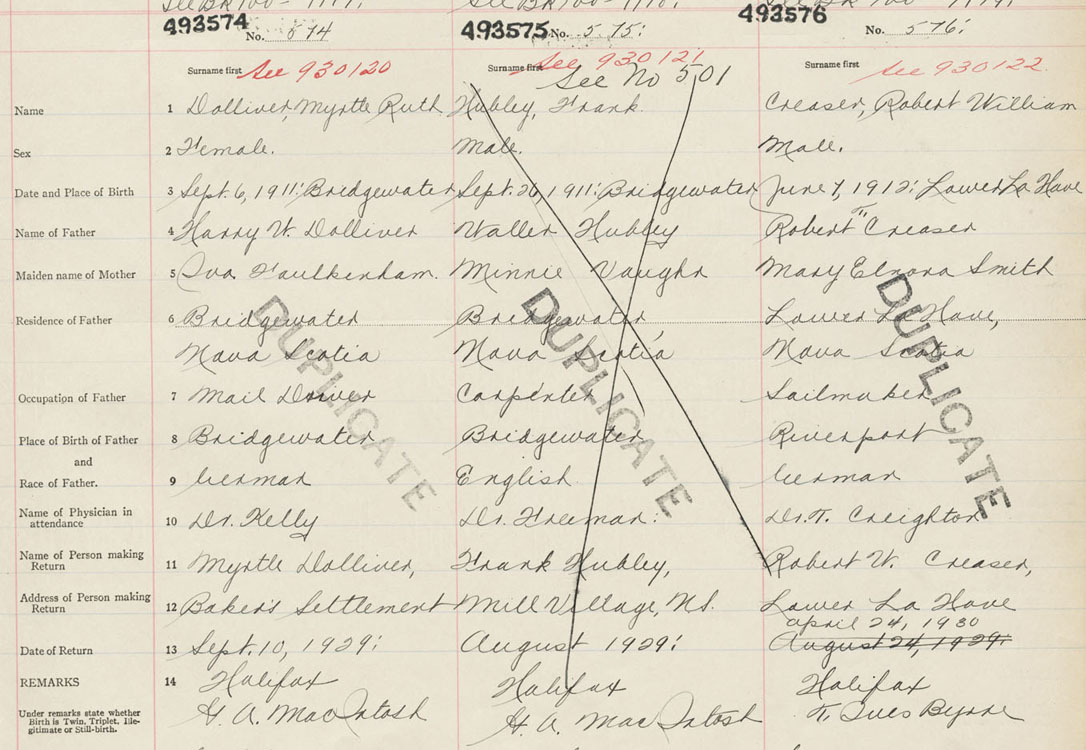 493574 493575 493576
No. 574 No. 575: No. 576:
Surname first See 930120 Surname first See 930121 Surname first See 930122.
See No 501
Name 1 Dolliver, Myrtle Ruth Hubley, Frank. Creaser, Robert William
Sex 2 Female. Male. Male.
Date and Place of Birth 3 Sept. 6, 1911: Bridgewater Sept. 26, 1911: Bridgewater June 7, 1912: Lower La Have
Name of Father 4 Harry W. Dolliver Walter Hubley Robert " Creaser
Maiden name of Mother 5 Iva Faulkenham. Minnie Vaughn Mary Elnora Smith
Residence of Father 6 Bridgewater Bridgewater, Lower La Have,
Nova Scotia Nova Scotia Nova Scotia
DUPLICATE DUPLICATE DUPLICATE
Occupation of Father 7 Mail Driver Carpenter Sailmaker
Place of Birth of Father 8 Bridgewater Bridgewater Riverport
and
Race of Father. 9 German English. German
Name of Physician in
attendance 10 Dr. Kelly Dr. Freeman. Dr. Creighton
Name of Person making
Return 11 Myrtle Dolliver, Frank Hubley, Robert W. Creaser,
Address of Person making
Return 12 Baker's Settlement Mill Village, N.S. Lower La Have
April 24, 1930
Date of Return 13 Sept. 10, 1929: August 1929: August 24, 1929:
REMARKS 14 Halifax Halifax Halifax
Under remarks state whether
Birth is Twin, Triplet, Ille-
gitimate or Still-birth.
H. A. MacIntosh H. A. MacIntosh Byrne